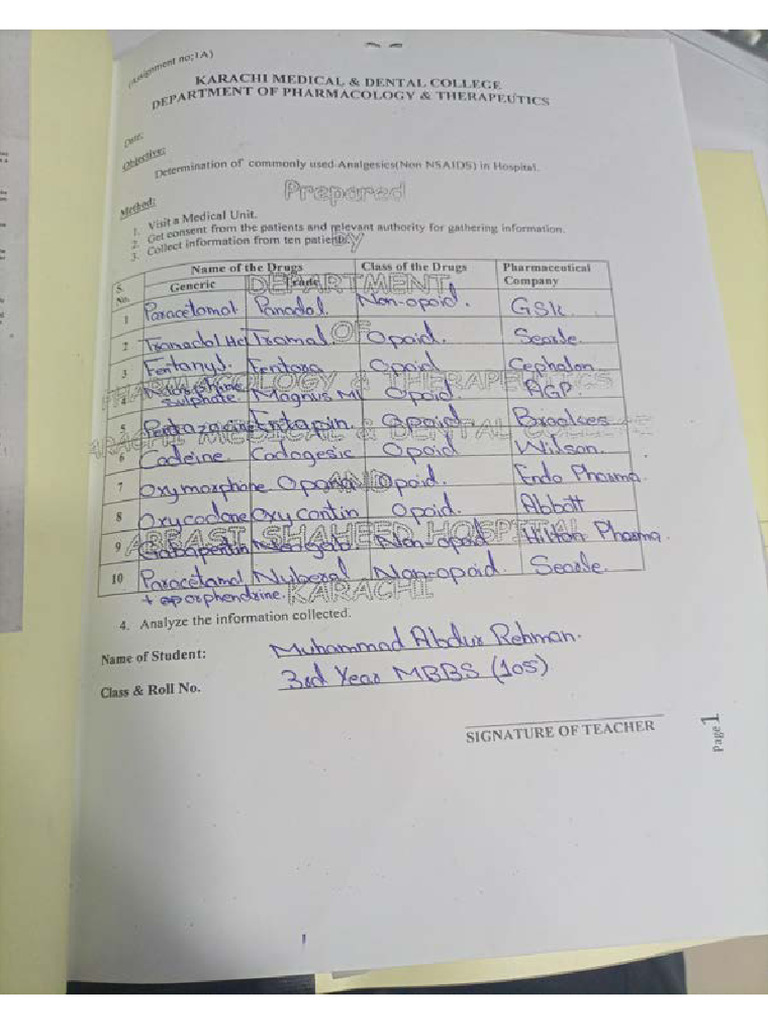 (Assignment no:1A)
KARACHI MEDICAL & DENTAL COLLEGE
DEPARTMENT OF PHARMACOLOGY & THERAPEUTICS
Date:
Objective:
Determination of commonly used Analgesics(Non NSAIDS) in Hospital.
Prepared
Method:
1. Visit a Medical Unit.
2. Get consent from the patients and relevant authority for gathering information.
3. Collect information from ten patients.
BY
S. No. Name of the Drugs Class of the Drugs Pharmaceutical Company
Generic Trade
DEPARTMENT
1 Paracetamol Panadol. Non-opoid. GSK.
OF
2 Tramadol Hcl Tramal. Opoid. Searle
3 Fentanyl. Fentora Opoid Cephalon
PHARMACOLOGY & THERAPEUTICS
4 sulphate. Magnus MR Opoid. AGP.
5 Entapin. Opoid Brookes
KARACHI MEDICAL & DENTAL COLLEGE
6 Codeine. Codogesic Opoid Wilson.
7 Oxymorphone Opana Opoid. Endo Pharma.
AND
8 Oxycodone Oxycontin Opoid. Abbott
ABBASI SHAHEED HOSPITAL
9 Gabapentin Non-opoid Hilton Pharma.
10 Paracetamol Nuberol Non-opoid. Searle.
+ oporphendrine.
KARACHI
4. Analyze the information collected.
Name of Student: Muhammad Abdur Rehman.
Class & Roll No. 3rd Year MBBS (105)
SIGNATURE OF TEACHER
Page 1